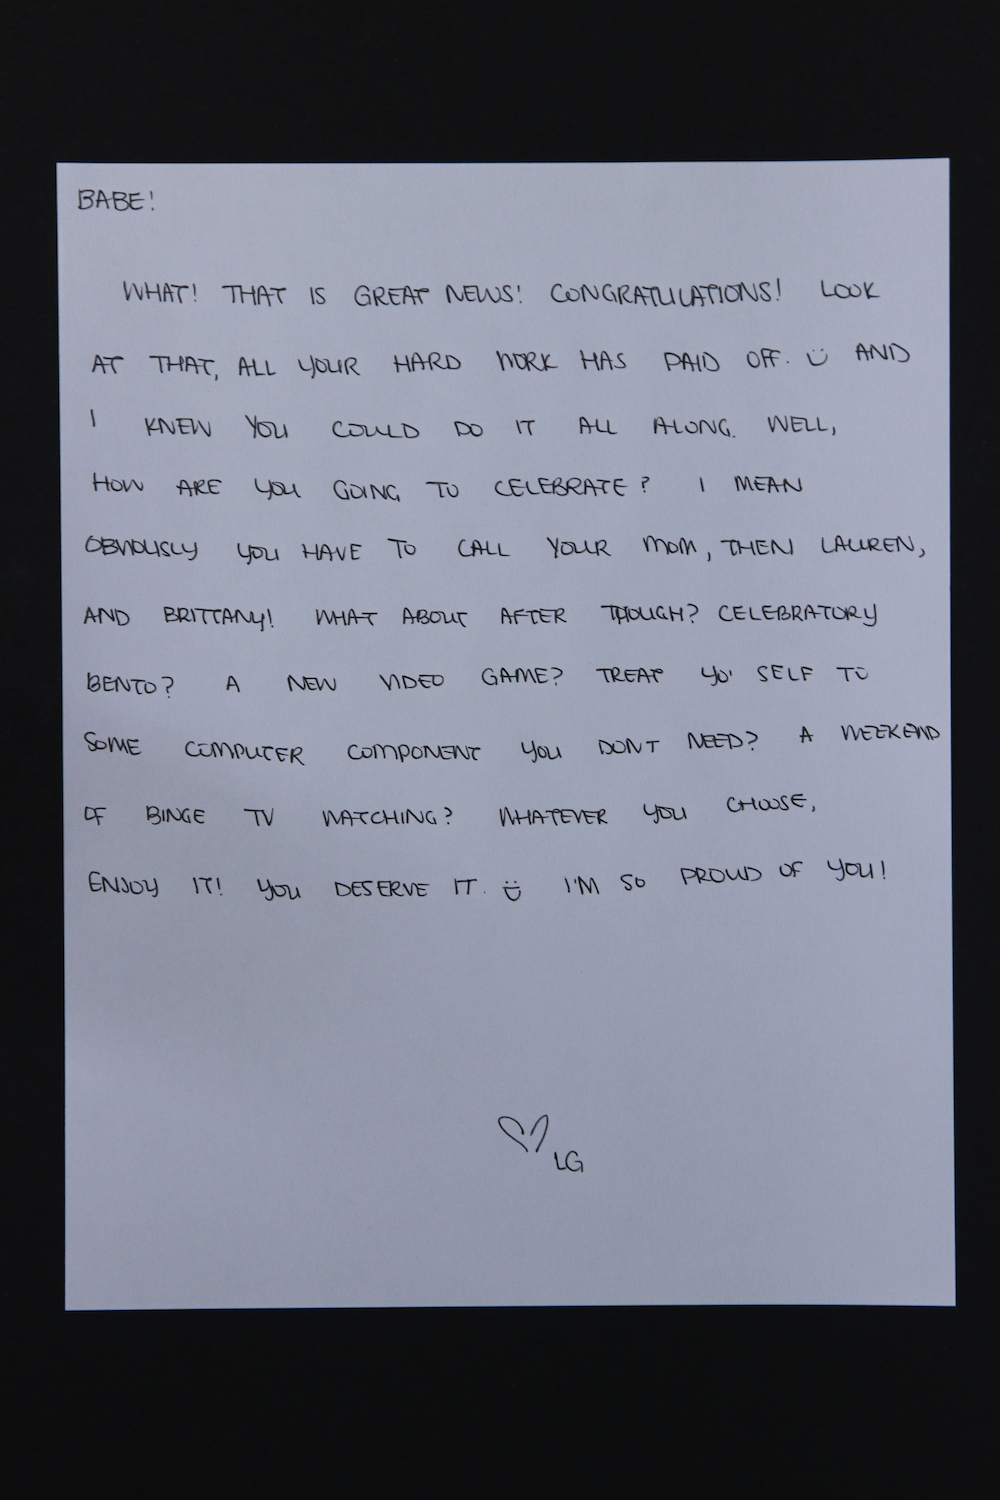 BABE!
WHAT! THAT IS GREAT NEWS! CONGRATULATIONS! LOOK
AT THAT, ALL YOUR HARD WORK HAS PAID OFF. Ü AND
I KNEW YOU COULD DO IT ALL ALONG. WELL,
HOW ARE YOU GOING TO CELEBRATE? I MEAN
OBVIOUSLY YOU HAVE TO CALL YOUR MOM, THEN LAUREN,
AND BRITTANY! WHAT ABOUT AFTER THOUGH? CELEBRATORY
BENTO? A NEW VIDEO GAME? TREAT YO' SELF TO
SOME COMPUTER COMPONENT YOU DONT NEED? A WEEKEND
OF BINGE TV WATCHING? WHATEVER YOU CHOOSE,
ENJOY IT! YOU DESERVE IT. Ü I'M SO PROUD OF YOU!
♡ LG